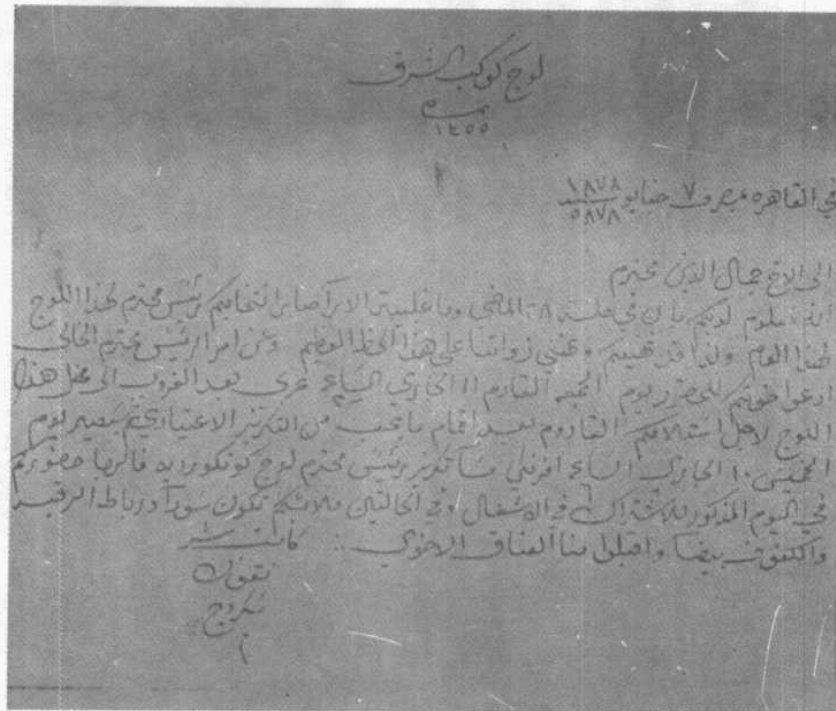 لوج كوكب الشرق
نمرة
١٣٥٥
في القاهرة بمصر في ٧ جنايو ١٨٧٨
سنة
٥٨٧٨
الى الاخ جمال الدين محترم
انه معلوم لديكم بان في جلسة ٢٨ الماضي وباغلبية الاراء صار انتخابكم رئيس محترم لهذا اللوج
لهذا العام ولذا قد نهنيكم ونهني ذواتنا على هذا الحظ العظيم وعن امر الرئيس محترم الحالي
ادعو اخوتكم للحضور يوم الجمعه القادم ١١ الجاري الساعة عربي بعد الغروب الى محل هذا
اللوج لاجل استلامكم القادوم بعد اتمام ما يجب من التكريز الاعتيادي ثم سيصير يوم
الخميس ١٠ الجاري الساعة افرنكي مساً تكريز رئيس محترم لوج كونكورديه فالرجا حضوركم
في اليوم المذكور للاشتراك في الاشغال وفي الحالتين ملابسكم تكون سوداً ورباط الرقبه
والكفوف بيضا واقبلوا منا العناق الاخوي
كاتب سر
نقولا
سكروج